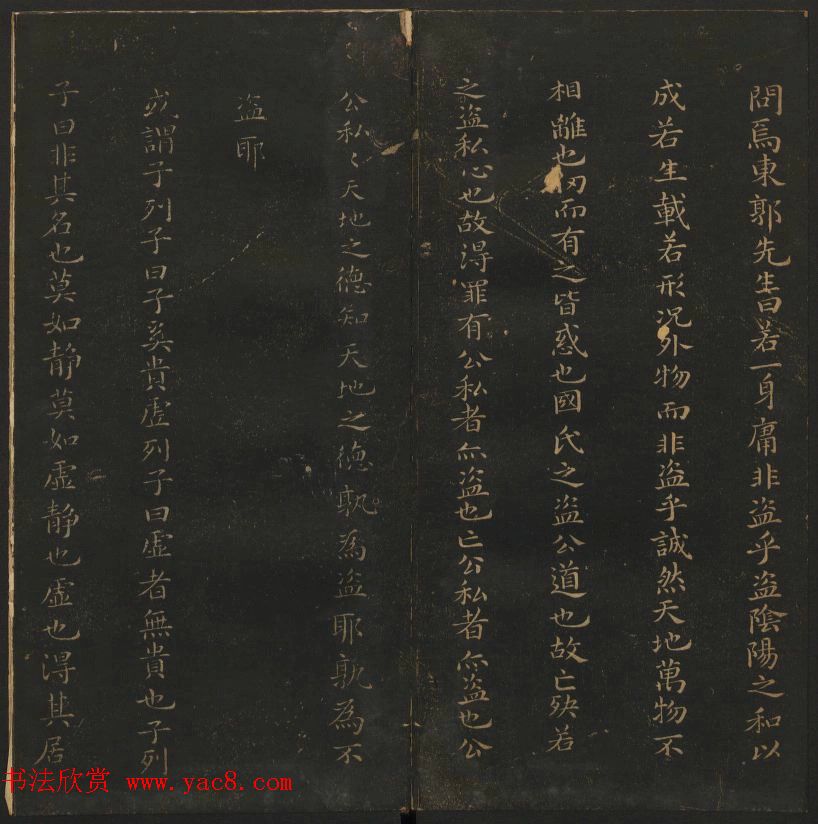 問焉東郭先生曰若一身庸非盗乎盗陰陽之和以
成若生載若形况外物而非盗乎誠然天地萬物不
相離也仞而有之皆惑也國氏之盗公道也故亡殃若
之盗私心也故淂罪有公私者亦盗也亡公私者亦盗也公
公私〻天地之德知天地之德孰為盗耶孰為不
盗耶
或謂子列子曰子奚貴虚列子曰虚者無貴也子列
子曰非其名也莫如静莫如虚静也虚也淂其居
书法欣赏 www.yac8.com